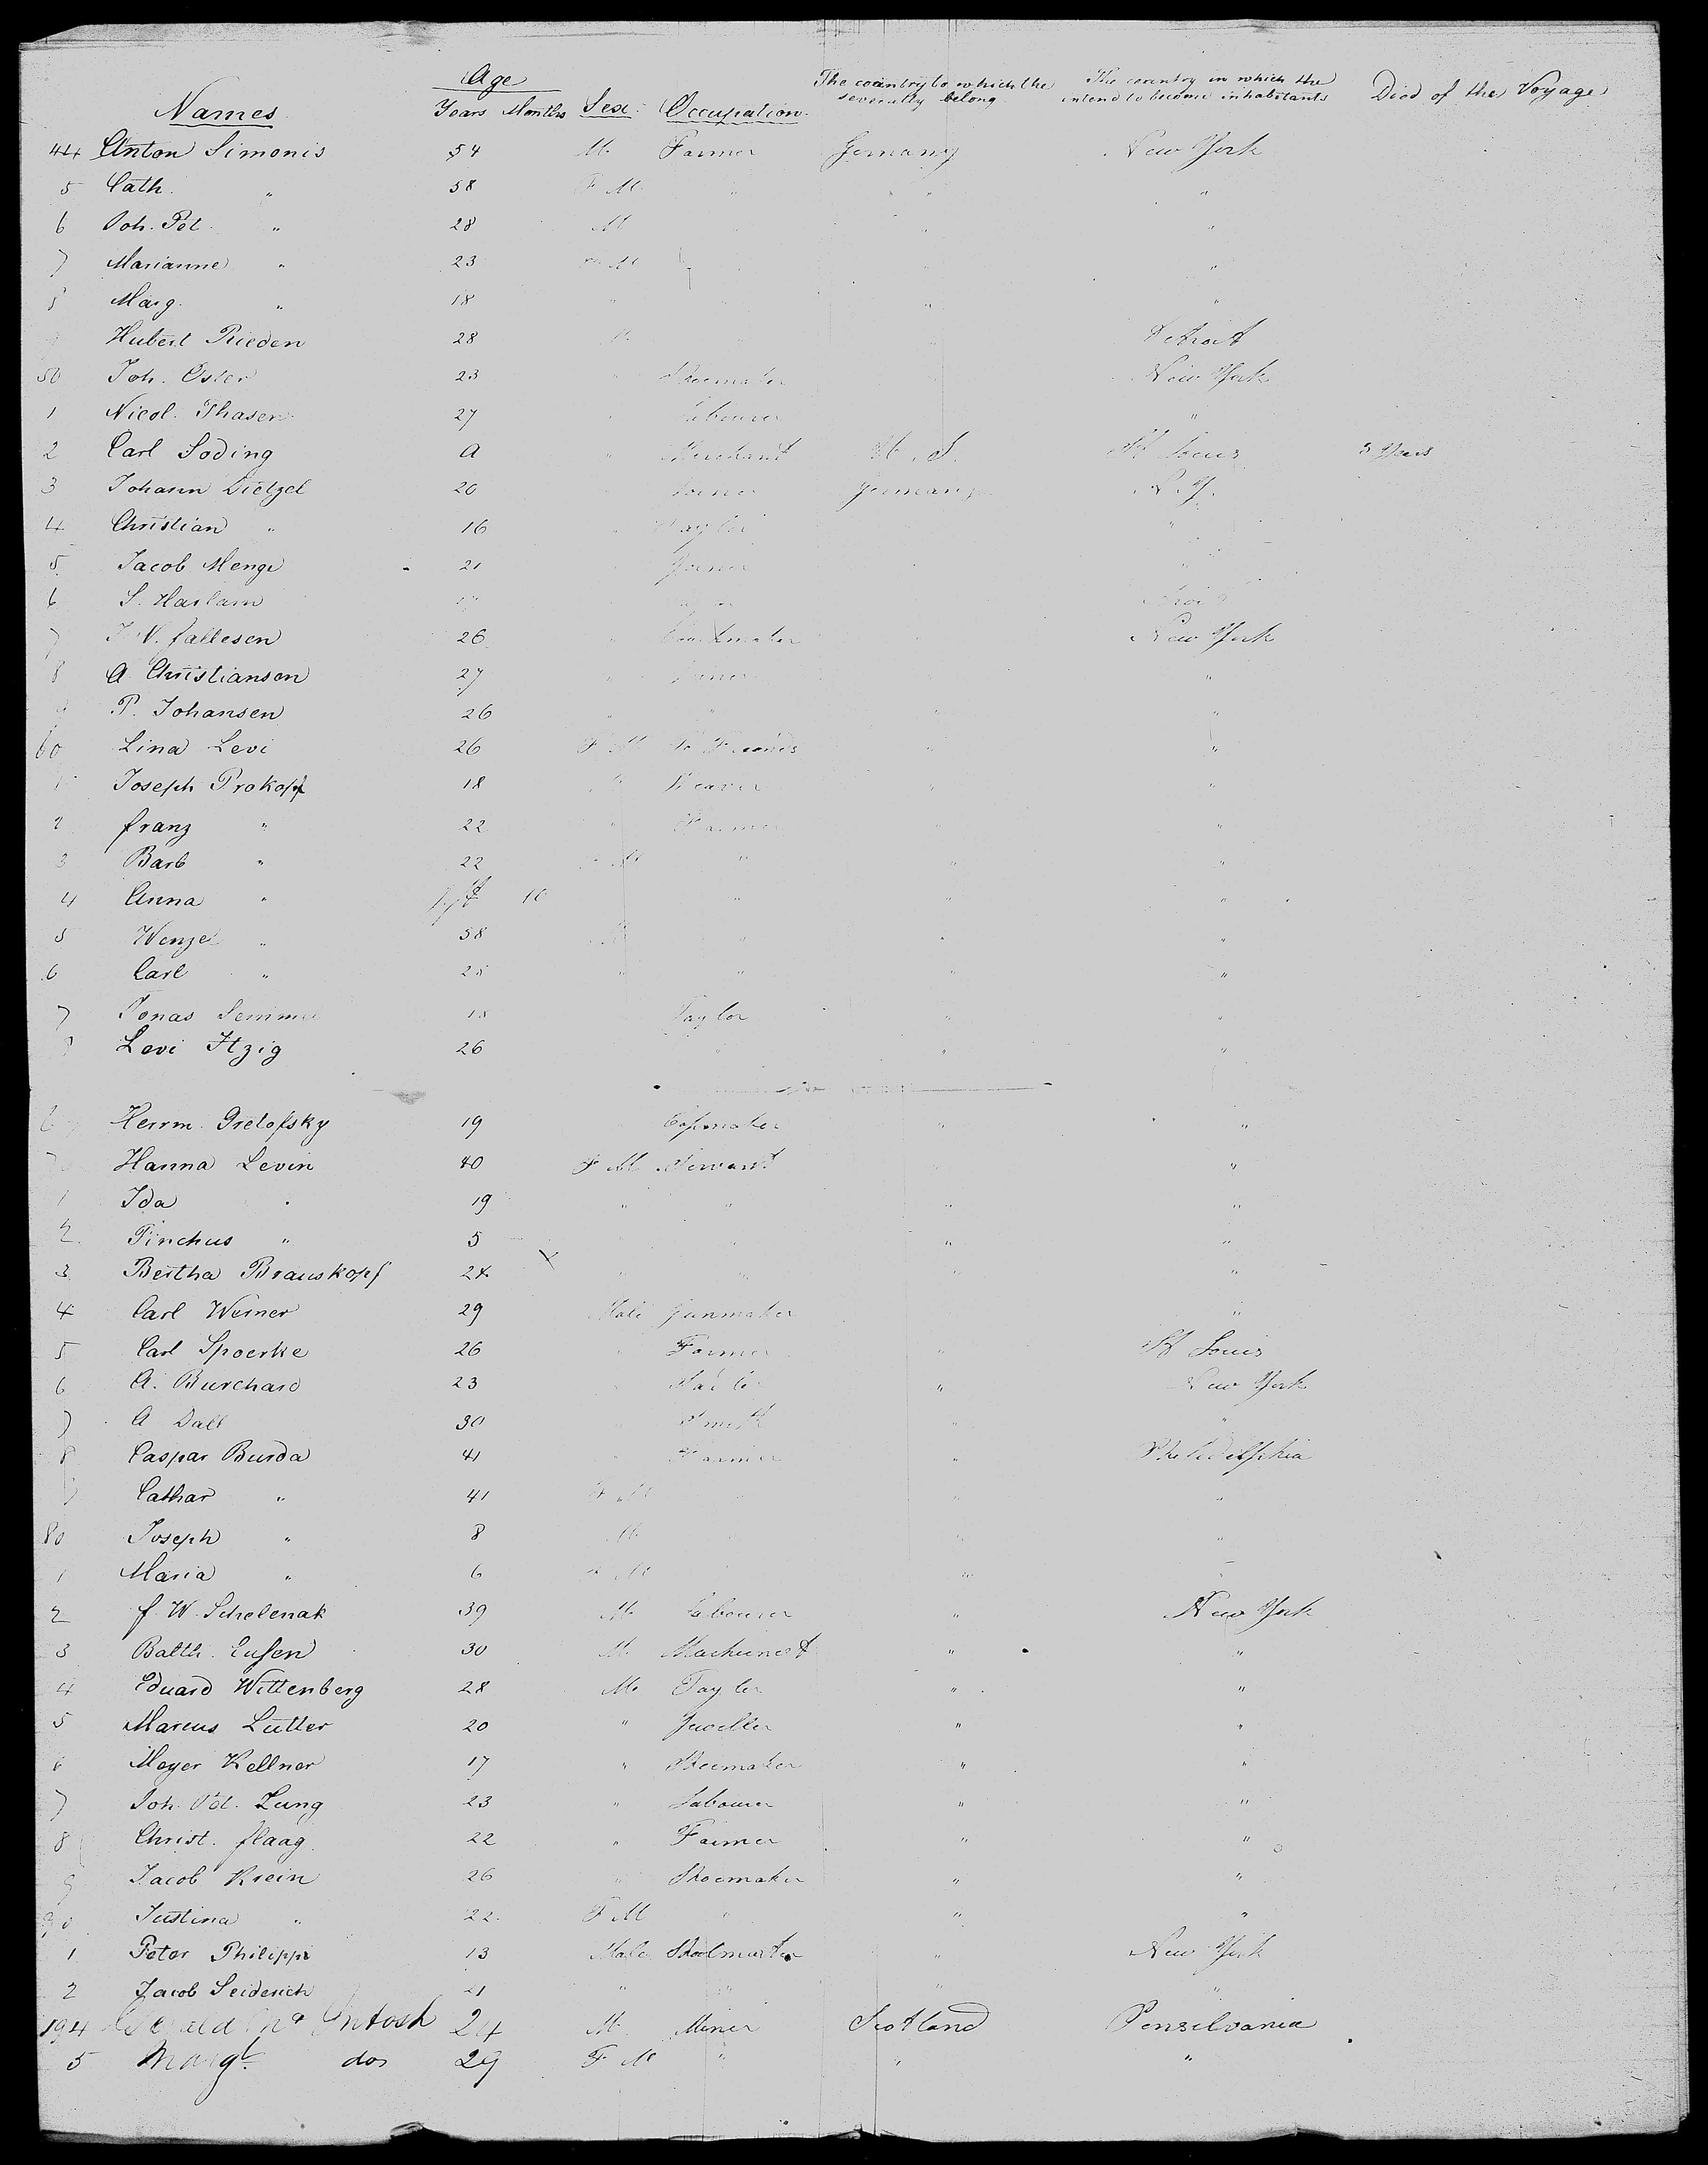 Age
Names Years Months Sex Occupation The country to which the severally belong The country in which the intend to become inhabitants Died of the Voyage
44 Anton Simonis 54 M. Farmer Germany New York
5 Cath. " 58 F M. " " "
6 Joh. Pet. " 28 M " "
7 Marianne " 23 M " "
8 Marg. " 18 " " " "
Hubert Rieden 28 M. Detroit
50 Joh. Oster 23 " Shoemaker New York
1 Nicol. Thasen 27 Labourer "
2 Carl Soding a " Merchant U. S. St Louis 3 Years
3 Johann Dietzel 20 Germany N. Y.
4 Christian " 16 Taylor "
5 Jacob Menge 21 Joiner "
6 S. Harlam
7 J. N. fallesen 26 New York
8 A Christiansen 27 " "
9 P. Johansen 26 " " " "
60 Lina Levi 26 F M To Friends " "
1 Joseph Prokopf 18 Weaver " "
2 franz " 22 " Farmer "
3 Barb " 22 M " " "
4 Anna " 10 " " "
5 Wenzel " 58 " " "
6 Carl " 25 " " " "
7 Jonas 18 Taylor " "
8 Levi Itzig 26 " " "
Herrm. Gretofsky 19 Capmaker " "
Hanna Levin 40 F M Servant "
1 Ida " 19 " " " "
2. Pinchus " 5 " "
3 Bertha Brauskopf 24 " " " "
4 Carl Werner 29 Male Gunmaker "
5 Carl Spoerke 26 " Farmer " St Louis
6 A. Burchard 23 " New York
7 A Dall 30 Smith " "
8 Caspar Burda 41 Farmer " Philidelphia
9 Cathar " 41 F M " "
80 Joseph " 8 M. " "
1 Maria " 6 F M "
2 f. W. Schelenak 39 M. Labourer " New York
3 Balth. Eussen 30 M. Machinest " "
4 Eduard Wittenberg 28 M. Taylor " "
5 Marcus Lutter 20 " Jueller " "
6 Meyer Kellner 17 " Shoemaker " "
7 Joh. Pet. Zung 23 " Labourer " "
8 Christ. flaag 22 " Farmer " "
9 Jacob Krein 26 " Shoemaker " "
90 Justina " 22. F M " " "
1 Peter Philippi 13 Male " New York
2 Jacob Seiderich 21 " " " "
194 Intosh 24 M. Miner Scotland Pensilvania
5 Margt do 29 F M " " "